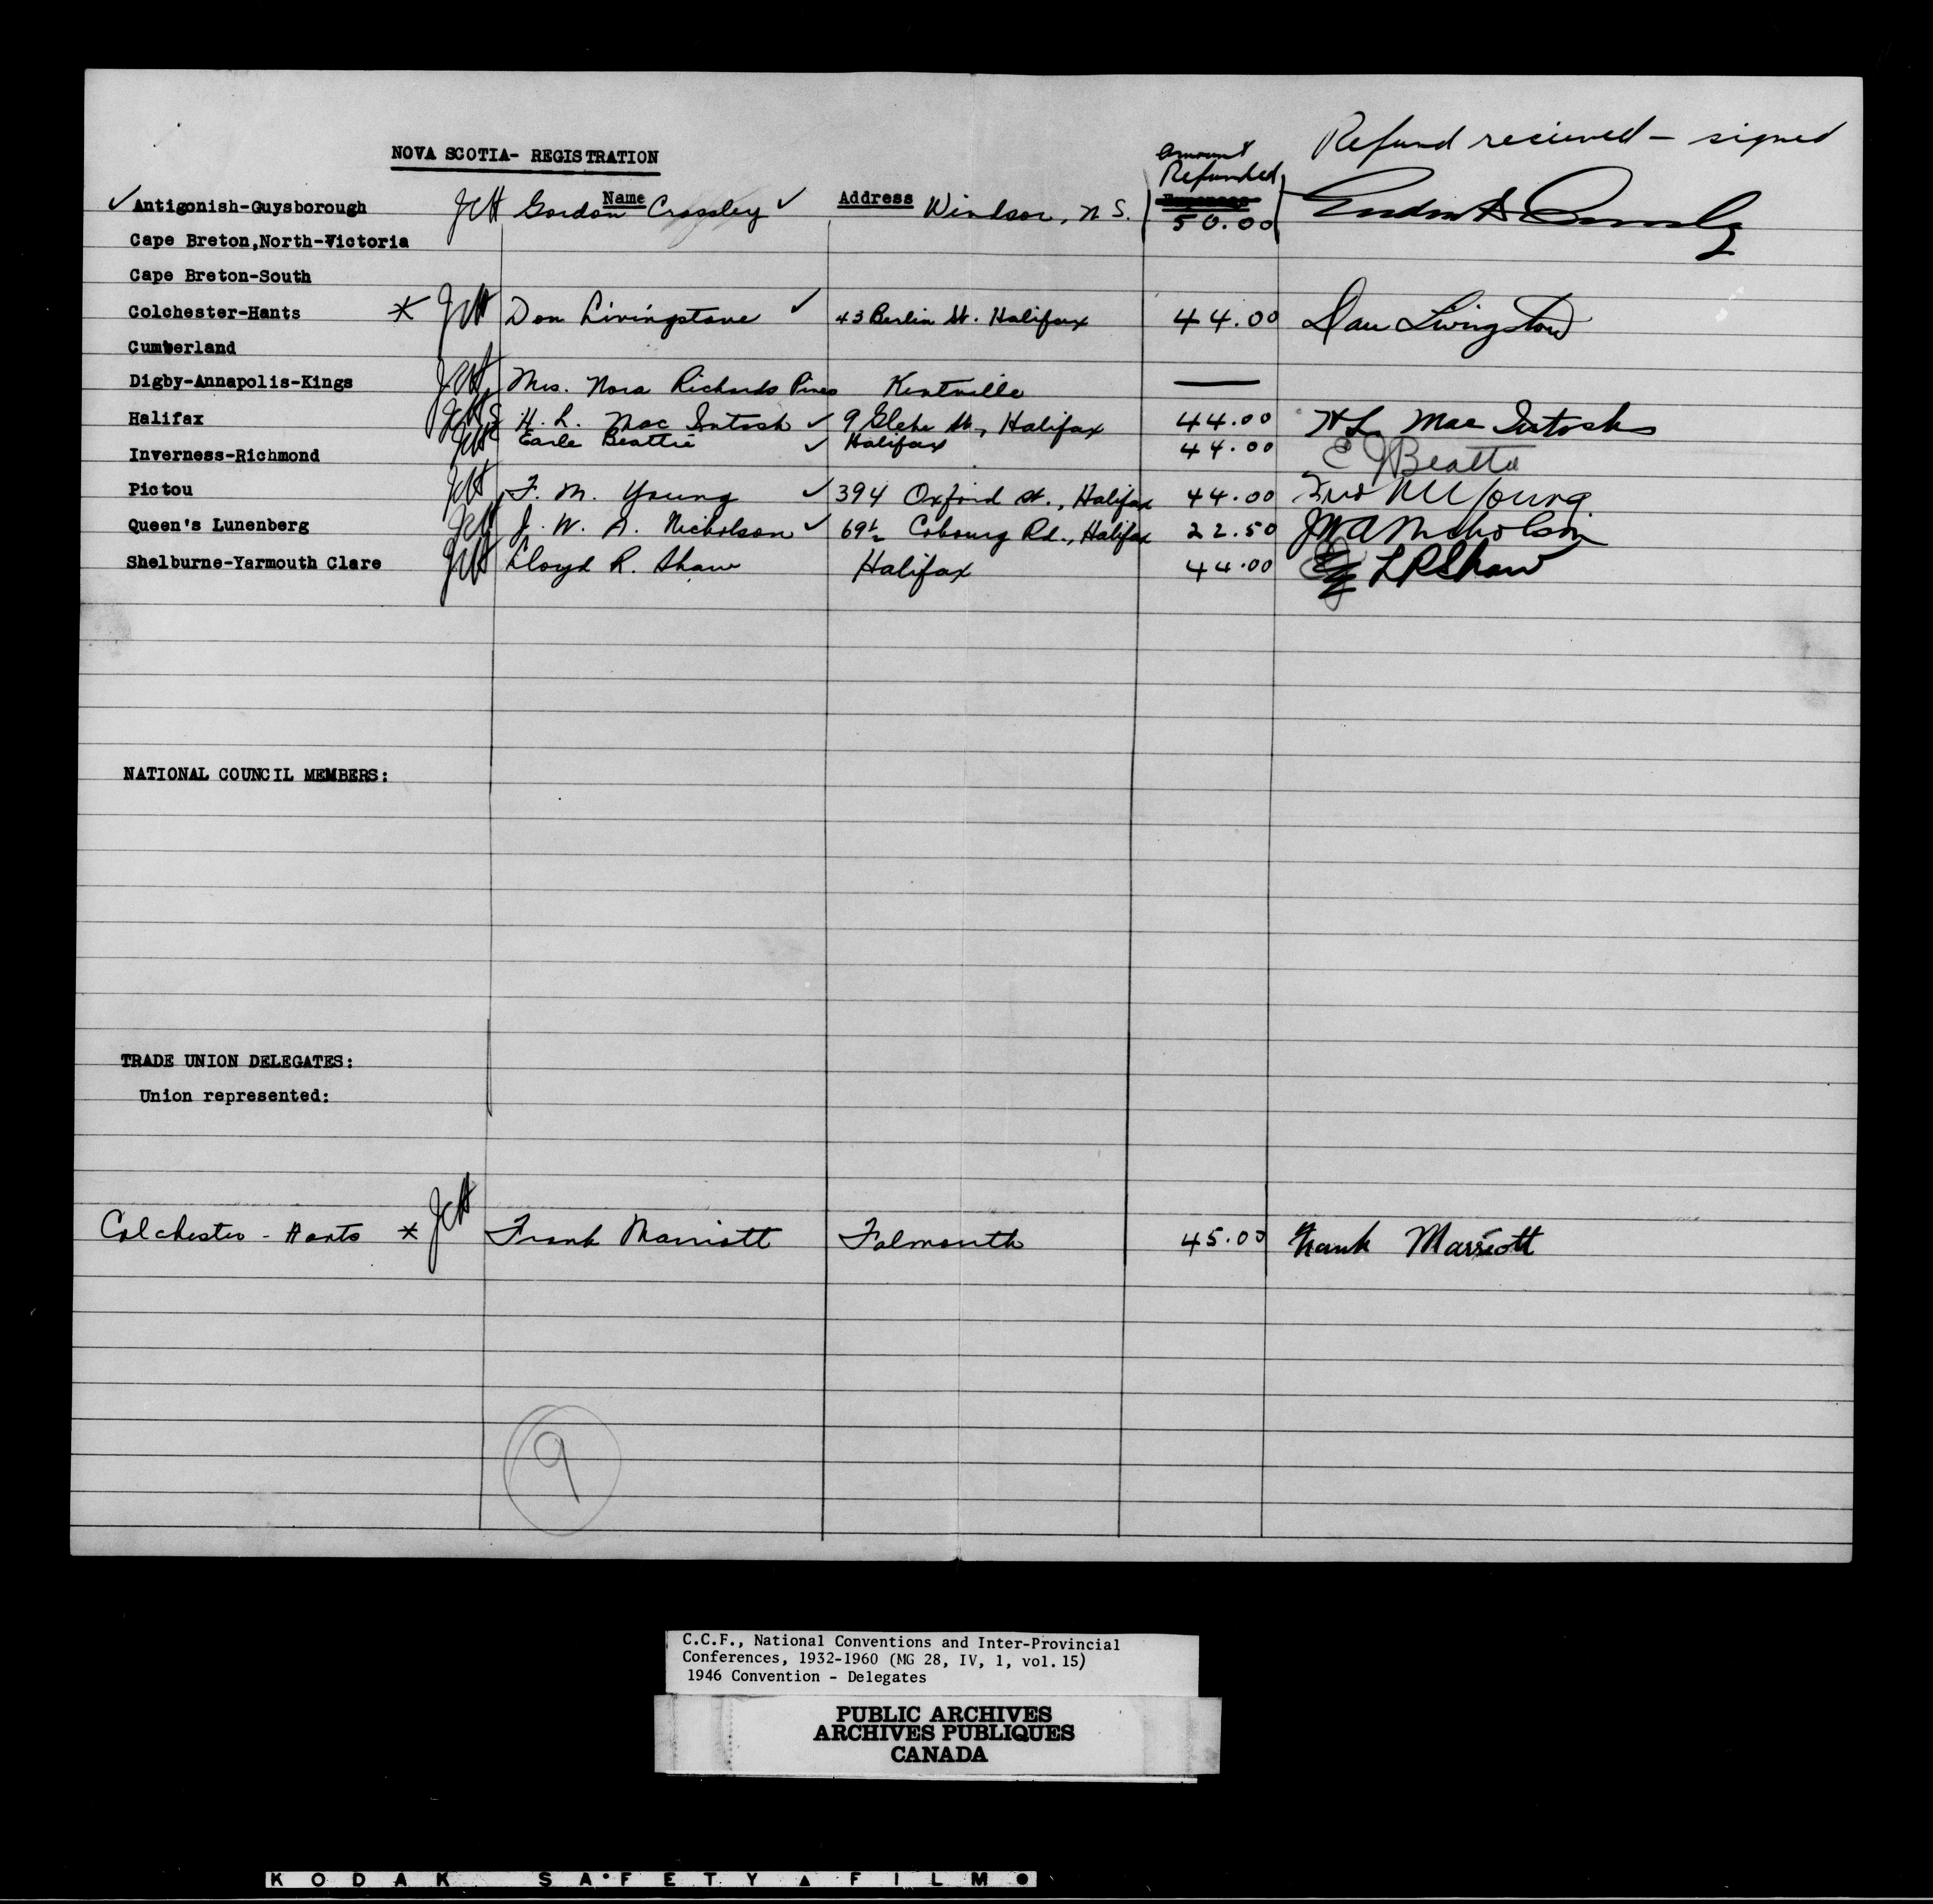 Refund recieved - signed
NOVA SCOTIA- REGISTRATION
amount
Refunded
Name Address Expenses
✓ Antigonish-Guysborough JCH Gordon Crossley ✓ Windsor, N S. 50.00
Cape Breton,North-Victoria
Cape Breton-South
Colchester-Hants * JCH Don Livingstone ✓ 43 Berlin St. Halifax 44.00 Dan Livingston
Cumberland
Digby-Annapolis-Kings JCH Mrs. Nora Richards Pines Kentville —
Halifax JCH H. L. Mac Intosh ✓ 9 Glebe St., Halifax 44.00 H L Mac Intosh
JCH Earle Beattie ✓ Halifax 44.00 E J Beattie
Inverness-Richmond
Pictou JCH F. M. Young ✓ 394 Oxford St., Halifax 44.00 Fred M Young
Queen's Lunenberg JCH J. W. A. Nicholson ✓ 69½ Cobourg Rd., Halifax 22.50 JWA Nicholson
Shelburne-Yarmouth Clare JCH Lloyd R. Shaw Halifax 44.00 LRShaw
NATIONAL COUNCIL MEMBERS:
TRADE UNION DELEGATES:
Union represented:
Colchester - Hants * JCH Frank Marriott Falmouth 45.00 Frank Marriott
9
C.C.F., National Conventions and Inter-Provincial
Conferences, 1932-1960 (MG 28, IV, 1, vol. 15)
1946 Convention - Delegates
PUBLIC ARCHIVES
ARCHIVES PUBLIQUES
CANADA
KODAK SAFETY FILM